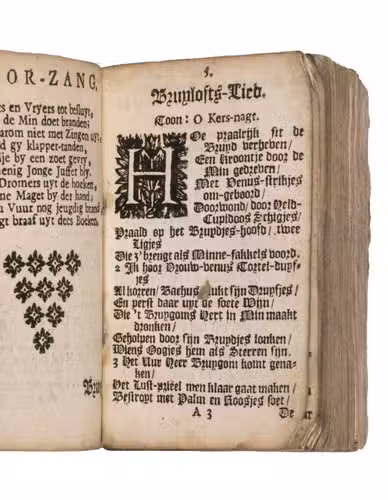 OR-ZANG.
s en Vryers tot besluyt,
de Min doet branden;
arom niet met Zingen uyt,
d gy klapper-tanden,
je by een zoet gevry,
enig Jonge Juffer bly.
Dromers uyt de hoeken,
ne Maget by der hand;
n Vuur nog jeugdig brand,
gt braaf uyt dees Boeken.
Bruy
5.
Bruylofts-Lied.
Toon: O Kers-nagt.
HOe praalrijk sit de
Bruyd verheben/
Een Kroontje door de
Min gedreven/
Met Venus-strikjes
om-geboord/
Doorwond/door Veld-
Cupidoos Schigjes/
Praald op het Bruydjes-hoofd/twee
Ligjes
Die 3' brengt als Minne-fakkels voord.
2 Ik hoor Vrouw-venus Tortel-duyf-
jes
Al korren/ Bachus plukt sijn Druyfjes/
En perst daar uyt de soete Wijn/
Die 't Bruygoms Hert in Min maakt
dronken/
Geholpen door sijn Bruydjes lonken/
Wiens Oogjes hem als Sterren sijn.
3 Het Uur Heer Bruygom komt gena-
ken/
Het Lust-prieel men klaar gaat maken/
Bestropt met Palm en Roosjes soet/
A 3
De